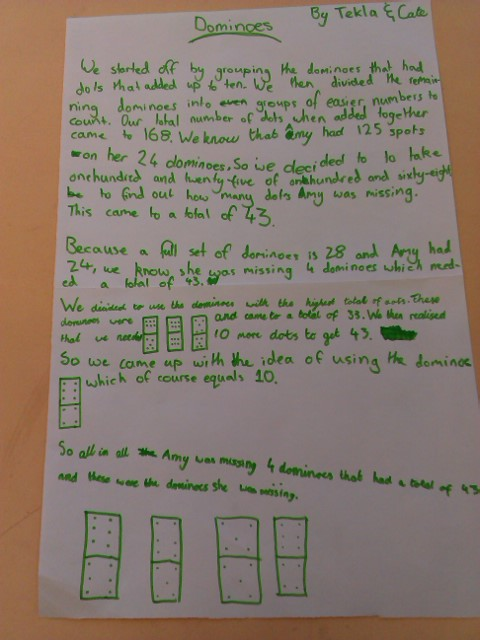 Dominoes
By Tekla & Cate
We started off by grouping the dominoes that had
dots that added up to ten. We then divided the remai-
ning dominoes into even groups of easier numbers to
count. Our total number of dots when added together
came to 168. We know that Amy had 125 spots
on her 24 dominoes. So we decided to to take
onehundred and twenty-five of onehundred and sixty-eight
to find out how many dots Amy was missing.
This came to a total of 43.
Because a full set of dominoes is 28 and Amy had
24, we know she was missing 4 dominoes which
ed a total of 43.
We divided to use the dominoes with the highest total of dots. These
dominoes were and came to a total of 33. We then realised
that we need 10 more dots to get 43.
So we came up with the idea of using the domino
which of course equals 10.
So all in all Amy was missing 4 dominoes that had a total of 43
and these were the dominoes she was missing.